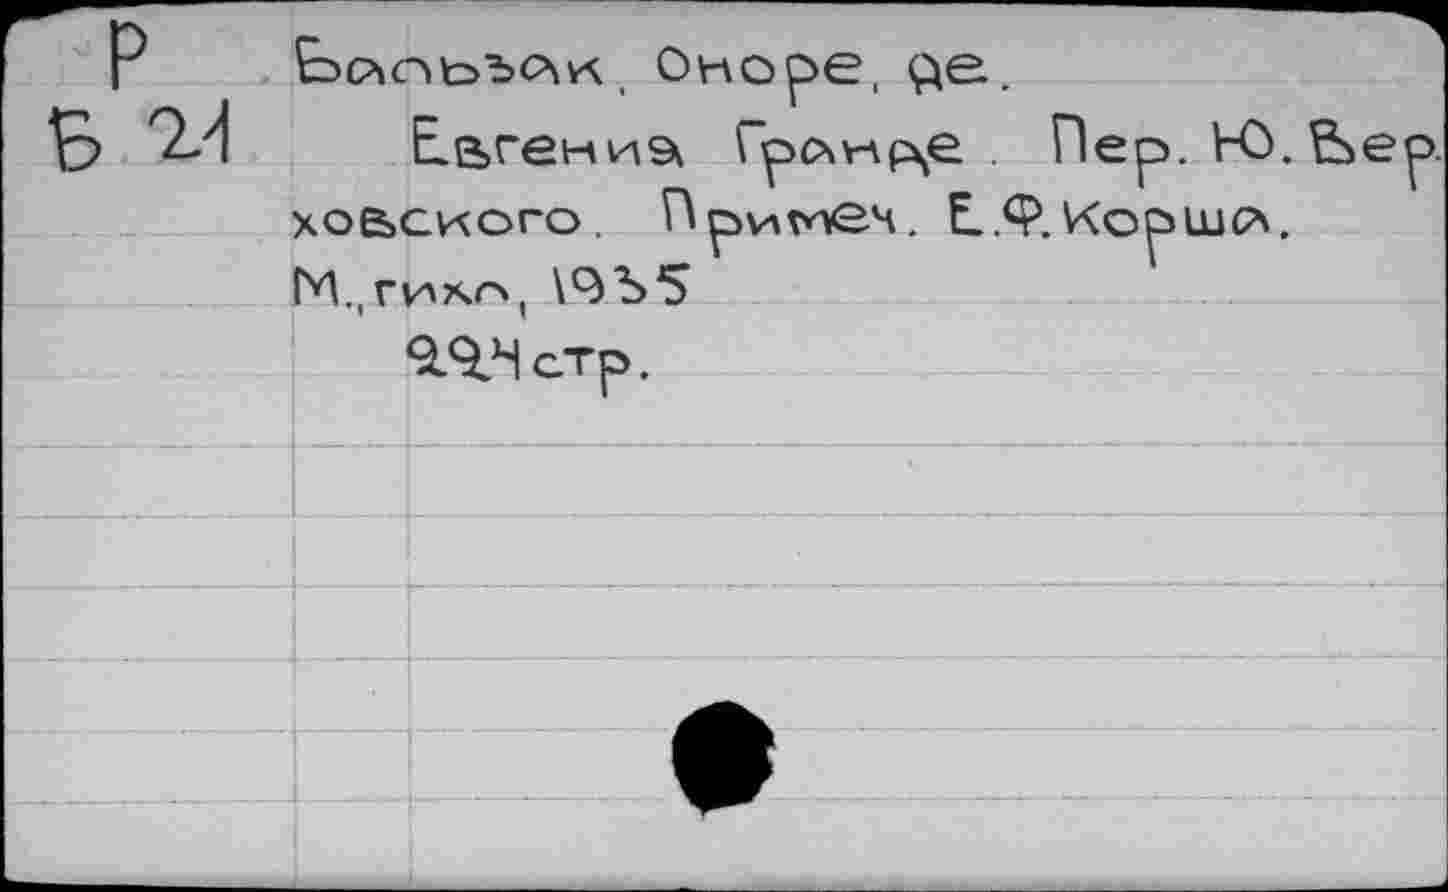 Р
Б 21
Бальзак, Оноре, де.
Евгения Гранде. Пер. Ю. Вер
ховского. Примеч. Е.Ф. Корша.
М., гихл, 1935
224 стр.